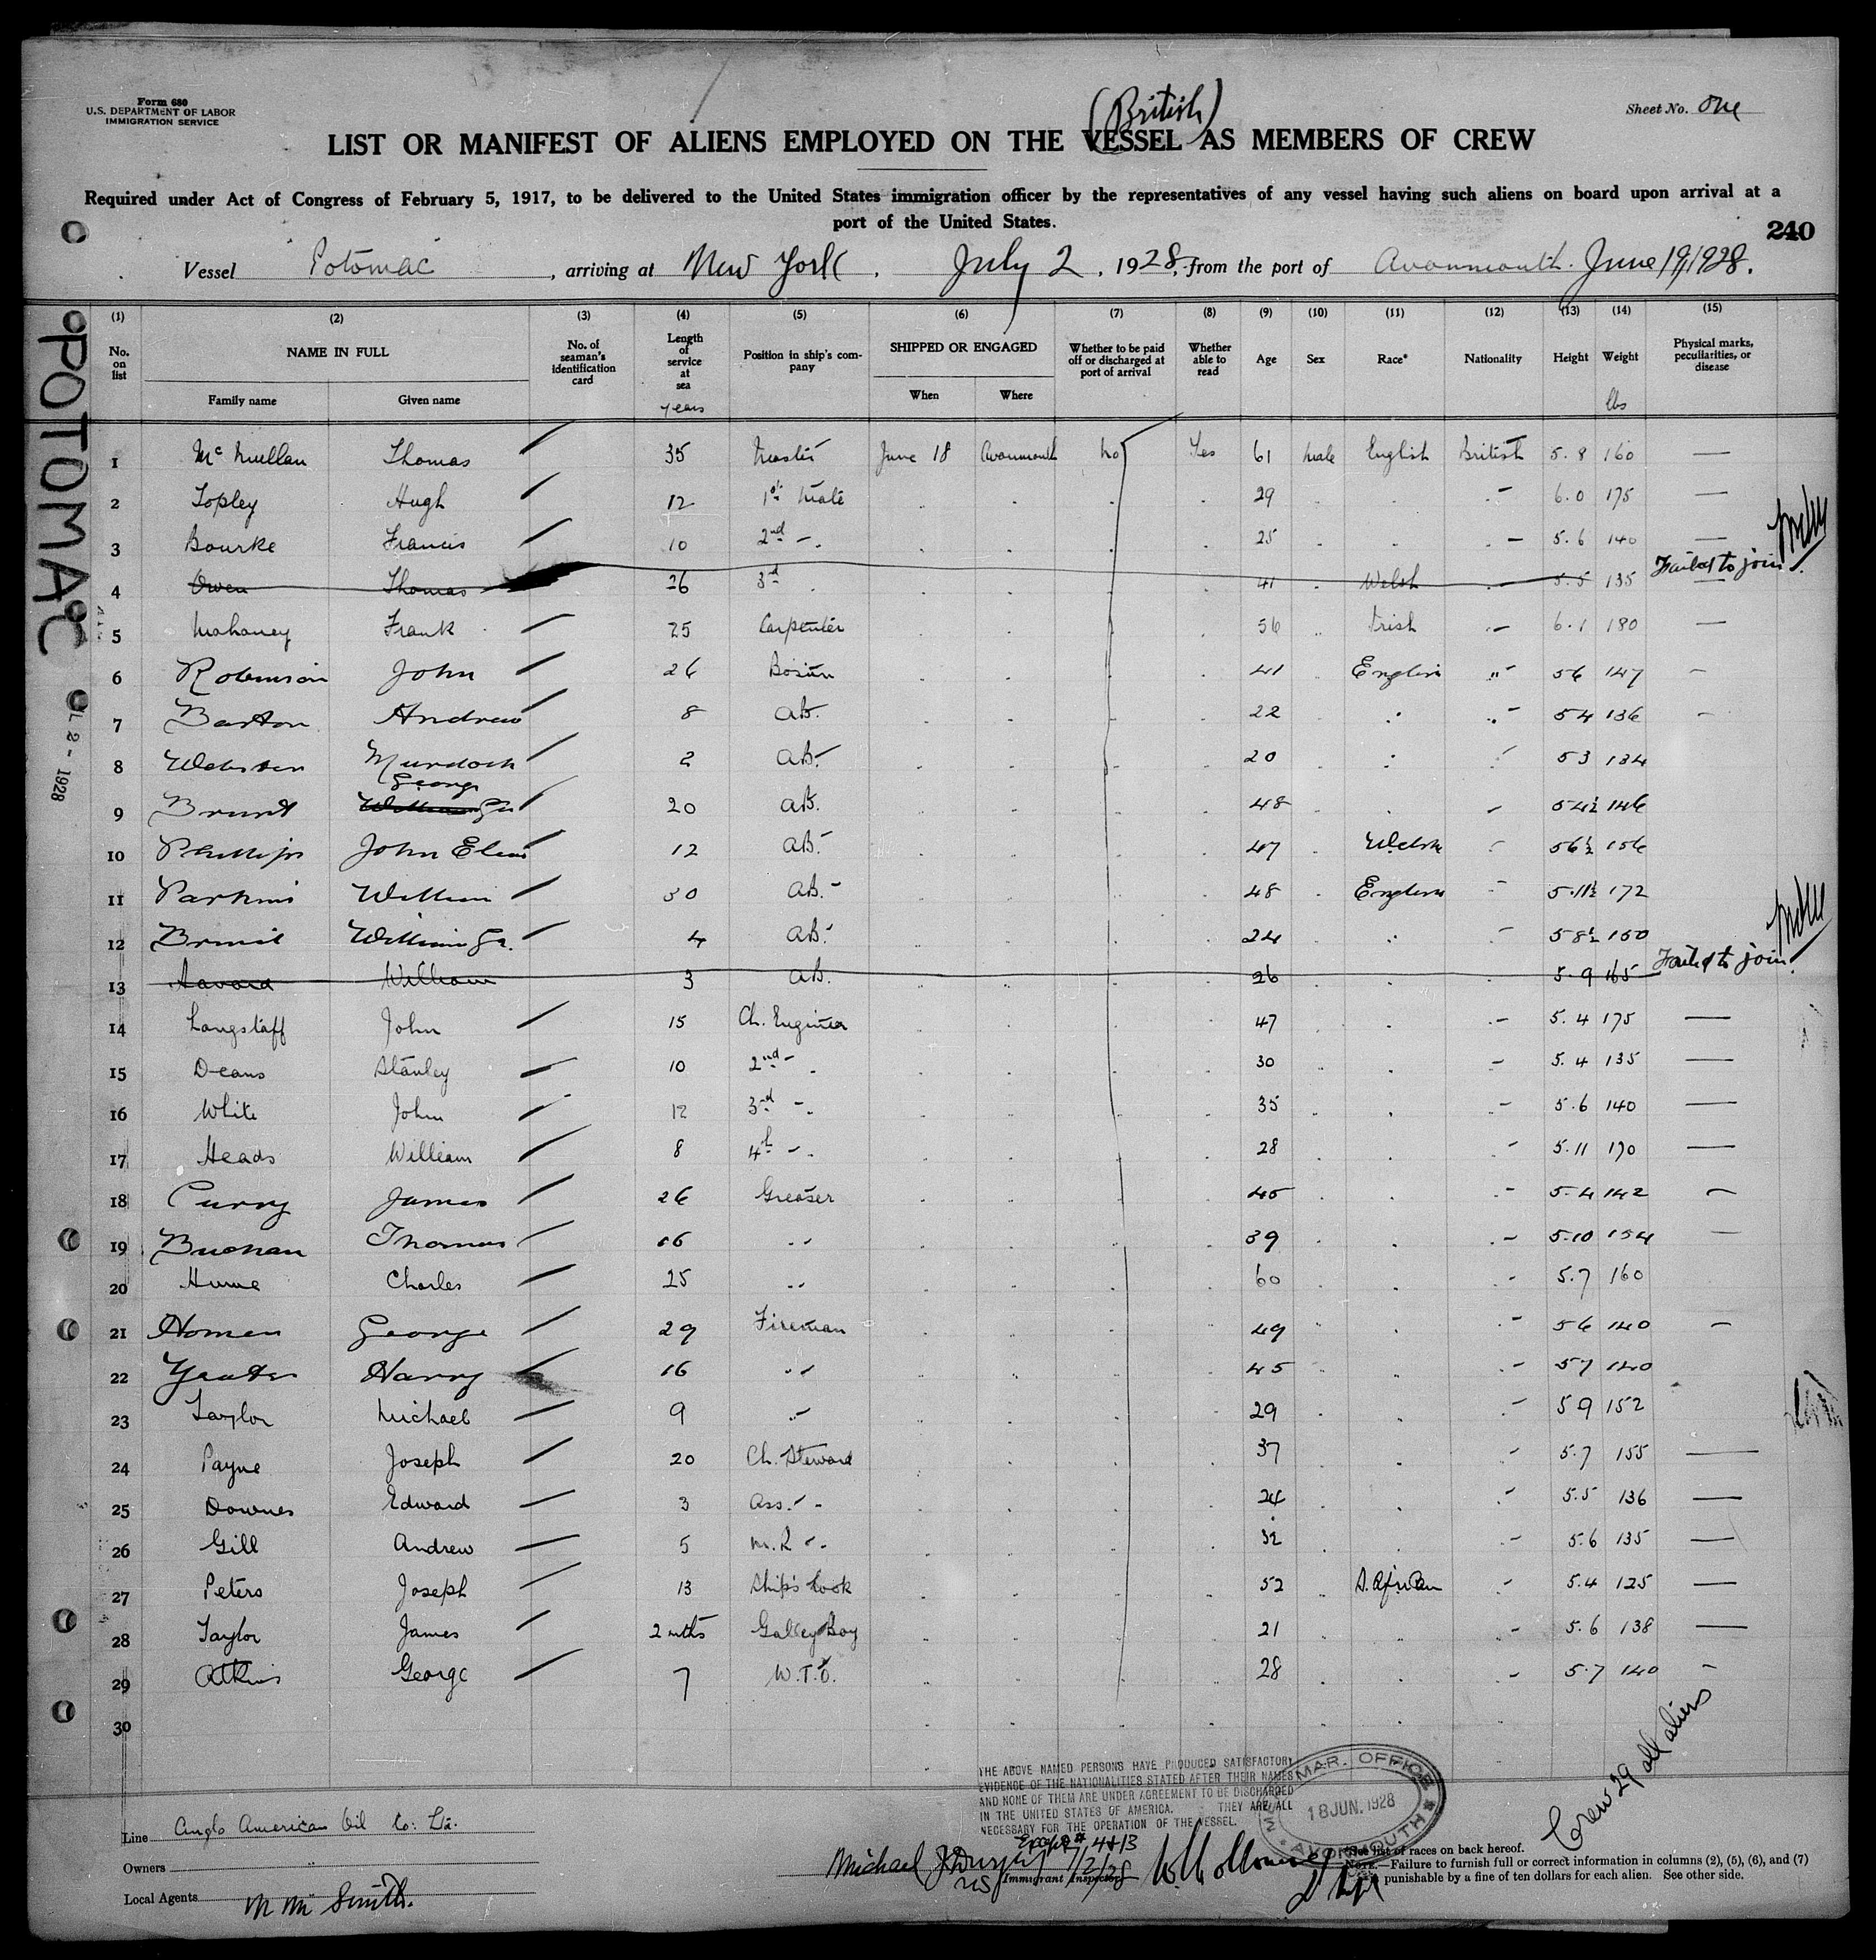 Form 680
U.S. DEPARTMENT OF LABOR
IMMIGRATION SERVICE
(British)
Sheet No. One
LIST OR MANIFEST OF ALIENS EMPLOYED ON THE VESSEL AS MEMBERS OF CREW
Required under Act of Congress of February 5, 1917, to be delivered to the United States immigration officer by the representatives of any vessel having such aliens on board upon arrival at a
port of the United States.
240
Vessel Potomac, arriving at New York, July 2, 1928, from the port of Avonmouth. June 19, 1928.
POTOMAC
L 2 - 1928
(1) (2) (3) (4) (5) (6) (7) (8) (9) (10) (11) (12) (13) (14) (15)
No. on list NAME IN FULL Family name Given name No. of seaman's identification card Length of service at sea years Position in ship's company SHIPPED OR ENGAGED When Where Whether to be paid off or discharged at port of arrival Whether able to read Age Sex Race* Nationality Height Weight lbs Physical marks, peculiarities, or disease
1 McMullan Thomas 35 Master June 18 Avonmouth No Yes 61 Male English British 5.8 160 —
2 Topley Hugh 12 1st Mate 29 6.0 175 —
3 Bourke Francis 10 2nd - 25 5.6 140 —
4 Owen Thomas 26 3rd 41 Welsh 5.5 135 Failed to join
5 Mahoney Frank 25 Carpenter 56 Irish 6.1 180 —
6 Robinson John 26 Bosun 41 English " 5 6 147 -
7 Barton Andrew 8 AB. 22 5 4 136 -
8 Webster Murdoch 2 AB 20 5 3 134
9 Brunt George 20 AB. 48 5 4½ 146
10 Phillips John 12 AB. 47 Welsh 5 6½ 156
11 Parkins William 30 AB. 48 English 5.11½ 172
12 William Geo. 4 AB. 24 5 8½ 150
13 William 3 AB. 26 5.9 165 Failed to join
14 Langstaff John 15 Ch. Engineer 47 5.4 175 —
15 Deans Stanley 10 2nd - 30 5.4 135 —
16 White John 12 3rd - 35 5.6 140 —
17 Heads William 8 4th - 28 5.11 190 —
18 Curry James 26 Greaser 45 5.4 142 -
19 Buchan Thomas 16 39 5.10 154 -
20 Hume Charles 25 60 5.7 160
21 George 29 Fireman 49 5 6 140 -
22 Harry 16 45 5 7 140
23 Taylor Michael 9 29 5 9 152
24 Payne Joseph 20 Ch. Steward 37 5.7 155 —
25 Downes Edward 3 Ass. 24 5.5 136 —
26 Gill Andrew 5 M.R 32 5.6 135 —
27 Peters Joseph 13 Ship's Cook 52 S. African 5.4 125 —
28 Taylor James 2 mths Galley Boy 21 5.6 138 —
29 Atkins George 7 W.T.O. 28 5.7 140 -
30
Crew 29 all aliens
THE ABOVE NAMED PERSONS HAVE PRODUCED SATISFACTORY
EVIDENCE OF THE NATIONALITIES STATED AFTER THEIR NAMES
AND NONE OF THEM ARE UNDER AGREEMENT TO BE DISCHARGED
IN THE UNITED STATES OF AMERICA. THEY ARE ALL
NECESSARY FOR THE OPERATION OF THE VESSEL.
MAR. OFFICE
18 JUN. 1928
AVONMOUTH
Except # 4 & 13
Line Anglo American Oil Co: Ltd.
Owners "
Local Agents
Michael 7/2/28
Immigrant Inspector
*See list of races on back hereof.
NOTE.—Failure to furnish full or correct information in columns (2), (5), (6), and (7)
punishable by a fine of ten dollars for each alien. See other side.